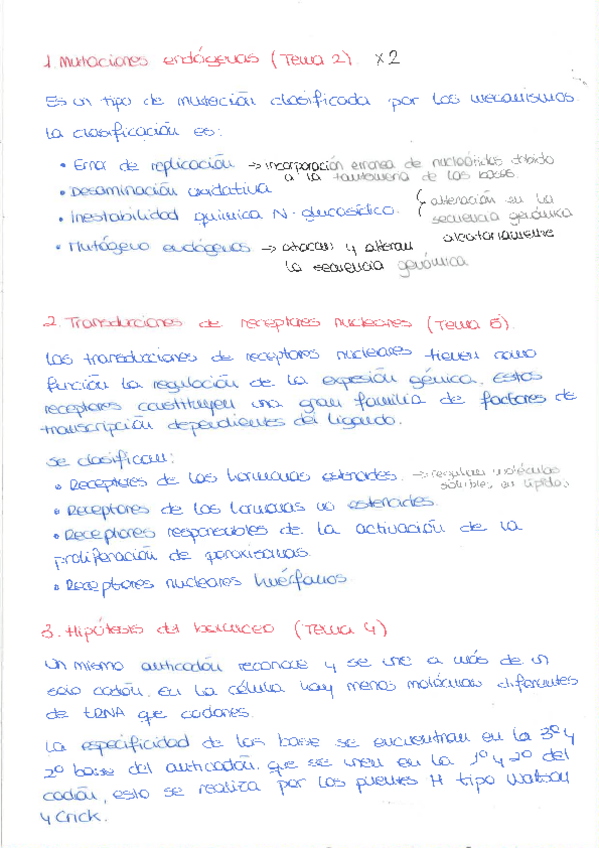 1. Mutaciones endógenas (Tema 2) x2
Es un tipo de mutación clasificada por los mecanismos
la clasificación es:
• Error de replicación → incorporación erronea de nucleótidos debido
a la tautomeria de las bases.
• Desaminación oxidativa
• Inestabilidad química N-glucosídico. { alteración en la
secuencia genómica
aleatoriamente
• Mutágeno endógenos → atacan y alteran
la secuencia genómica
2. Transducciones de receptores nucleares (Tema 5).
Las transducciones de receptores nucleares tienen como
función la regulación de la expresión génica. Estos
receptores constituyen una gran familia de factores de
transcripción dependientes del ligando.
se clasifican:
• Receptores de las hormonas esteroides. → regulan moléculas
solubles en lípidos
• Receptores de las hormonas no esteroides.
• Receptores responsables de la activación de la
proliferación de peroxisomas.
• Receptores nucleares huérfanos
3. Hipótesis del balanceo (Tema 4)
Un mismo anticodón reconoce y se une a más de un
solo codón. en la célula hay menos moléculas diferentes
de tRNA que codones.
La especificidad de las base se encuentran en la 3º y
2º base del anticodón, que se unen en la 1º y 2º del
codón, esto se realiza por los puentes H tipo Watson
y Crick.